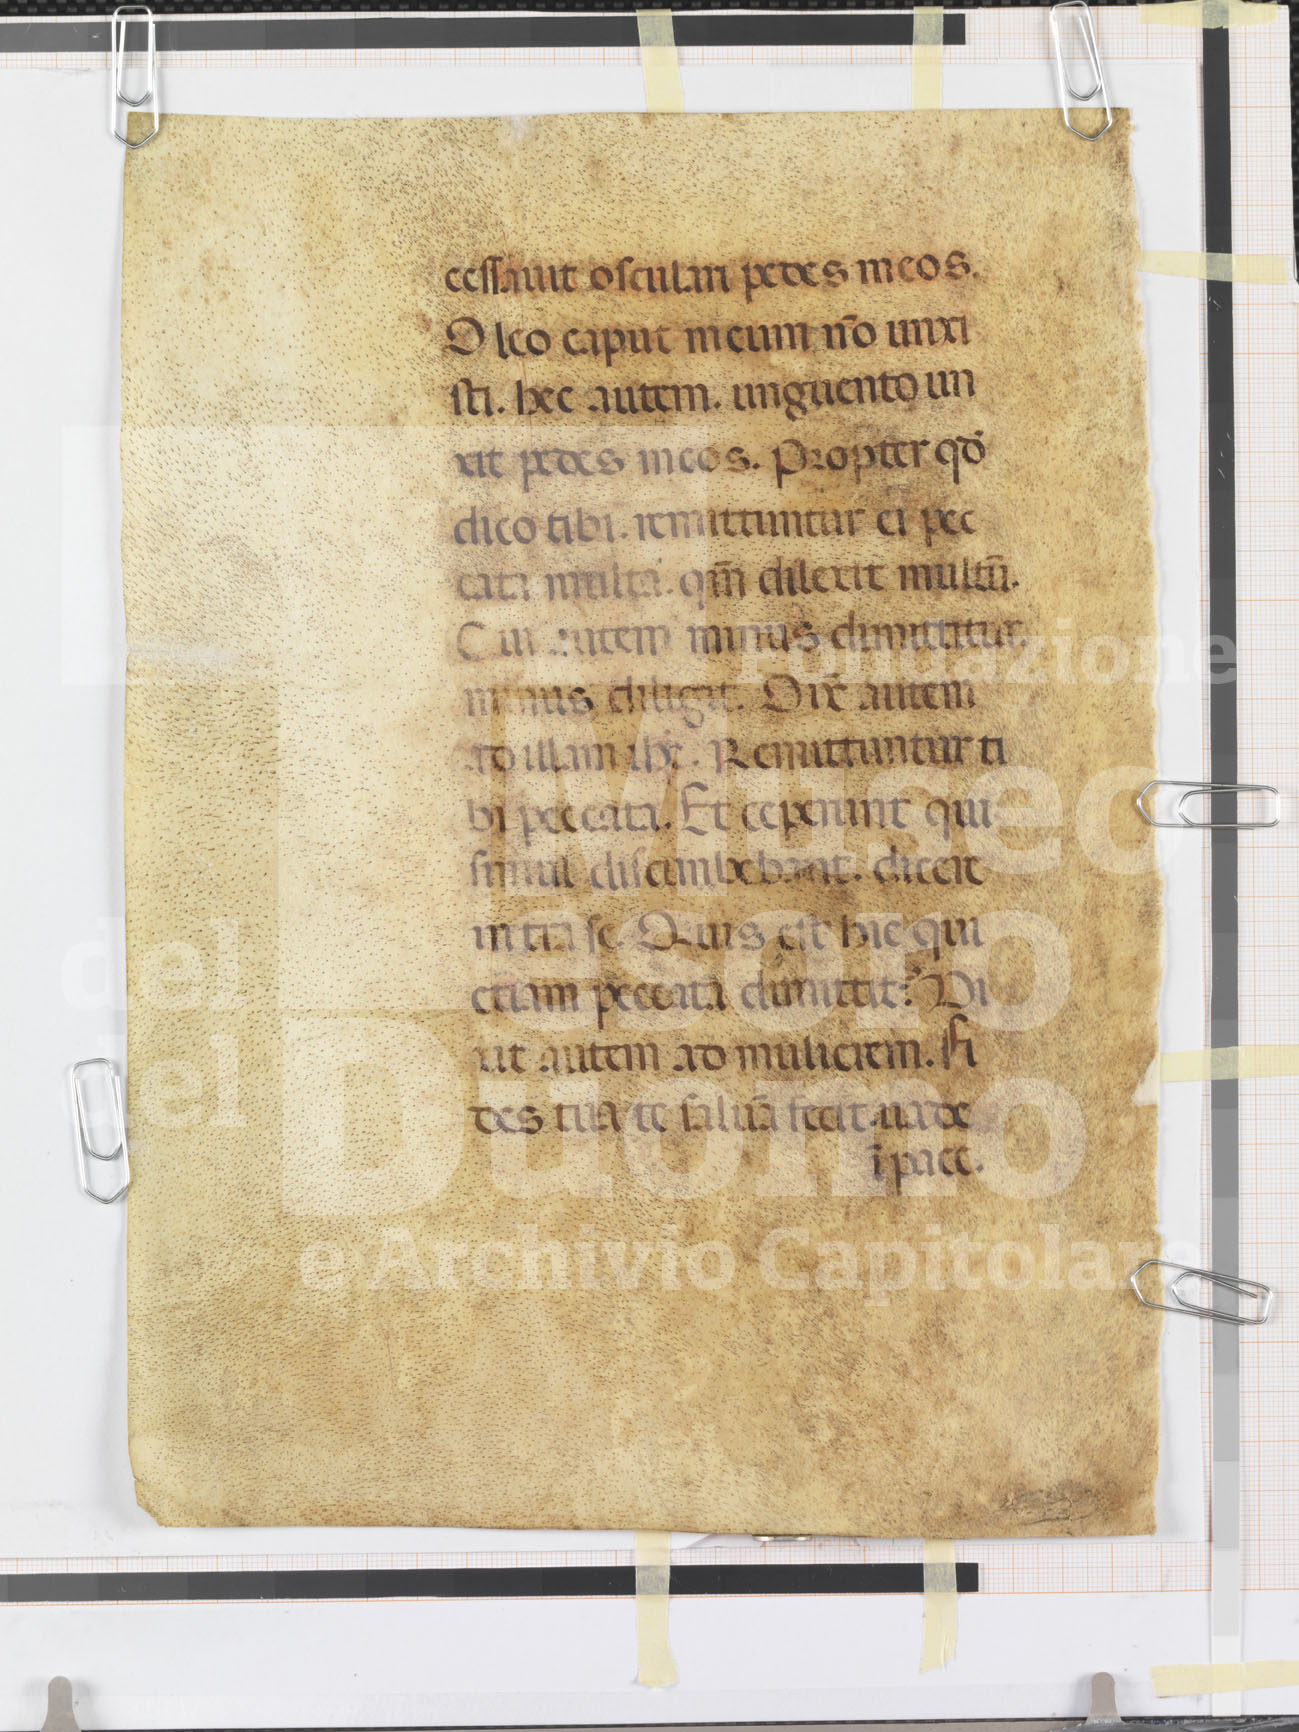 cessauit osculari pedes meos.
Oleo caput meum nō unxi
sti. hec autem. unguento un
xit pedes meos. Propter qđ
dico tibi. remittuntur ei pec
cata multa. qm̄ dilexit multū.
Cui autem minus dimittitur.
minus diligit. Dix̄ autem
ad illam ihc̄. Remittuntur ti
bi peccata. Et ceperunt qui
simul discumbebant. dicere
intra se. Quis est hic qui
etiam peccata dimittit? Di
xit autem ad mulierem. Fi
des tua te saluā fecit. uade
ī pace.
Fondazione
Museo
del Tesoro
del Duomo
e Archivio Capitolare